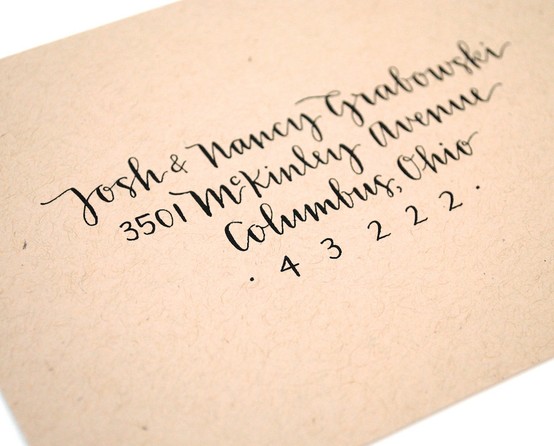 Josh & Nancy Grabowski
3501 McKinley Avenue
Columbus, Ohio
· 4 3 2 2 2 ·